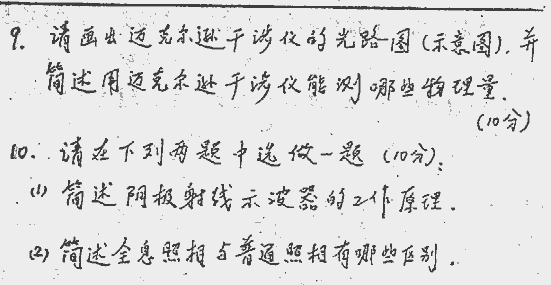 9. 请画出迈克尔逊干涉仪的光路图(示意图).并
简述用迈克尔逊干涉仪能测哪些物理量.
(10分)
10. 请在下列两题中选做一题(10分):
(1) 简述阴极射线示波器的工作原理.
(2) 简述全息照相与普通照相有哪些区别.